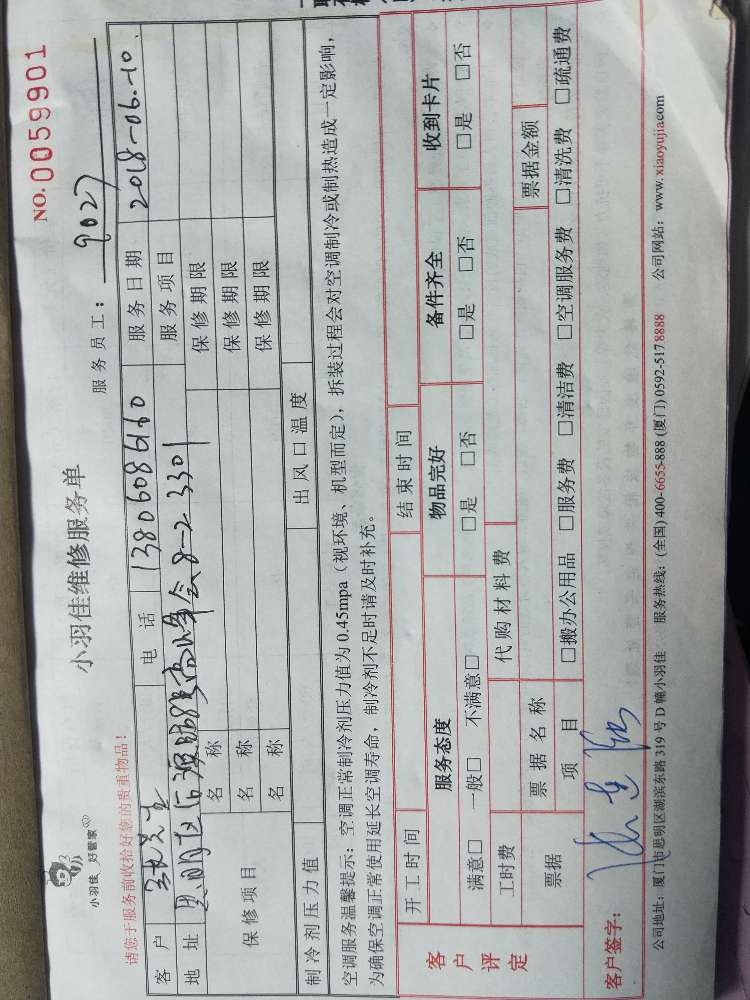 小羽佳 好管家
小羽佳维修服务单
NO.0059901
请您于服务前收拾好您的贵重物品！
服务员工：9027
客户 先生 电话 13806086160 服务日期 2018-06-10.
地址 思明区 8-2 3301 服务项目
保修项目 名称 保修期限
名称 保修期限
名称 保修期限
制冷剂压力值 出风口温度
空调服务温馨提示：空调正常制冷剂压力值为0.45mpa（视环境、机型而定），拆装过程会对空调制冷或制热造成一定影响，
为确保空调正常使用延长空调寿命，制冷剂不足时请及时补充。
客户评定
开工时间 结束时间
服务态度 物品完好 备件齐全 收到卡片
满意□ 一般□ 不满意□ □是 □否 □是 □否 □是 □否
工时费 代购材料费
票据 票据名称 票据金额
项目 □搬办公用品 □服务费 □清洁费 □空调服务费 □清洗费 □疏通费
客户签字：
公司地址：厦门市思明区湖滨东路319号D幢小羽佳 服务热线：(全国)400-6655-888 (厦门)0592-5178888 公司网站：www.xiaoyujia.com